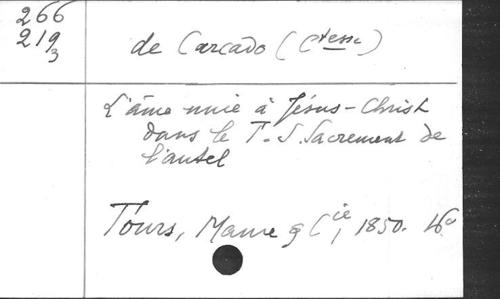 266
219
3
de Carcado (Ctesse)
L'âme unie à Jésus-Christ
dans le T. S. Sacrement de
l'autel
Tours, Mame & Cie, 1850. 16o